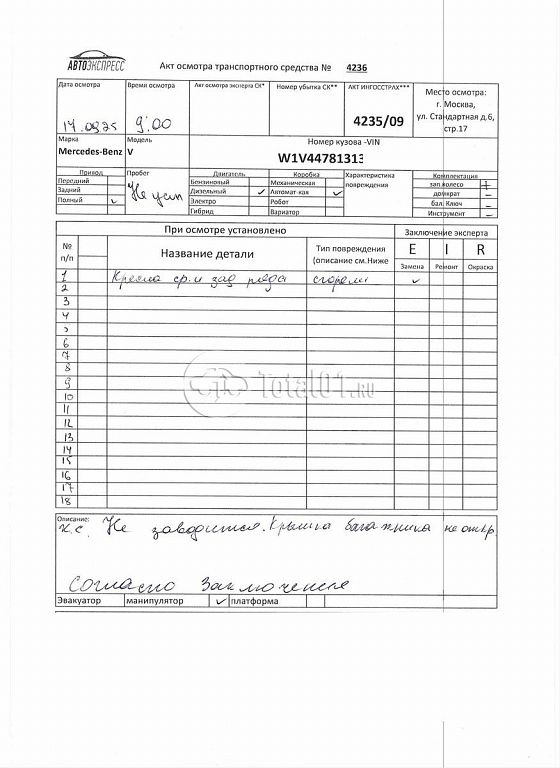 АВТОЭКСПРЕСС
Акт осмотра транспортного средства № 4236
Дата осмотра
Время осмотра
Акт осмотра эксперта СК*
Номер убытка СК**
АКТ ИНГОССТРАХ***
Место осмотра:
г. Москва,
ул. Стандартная д.6,
стр.17
9:00
4235/09
Марка
Модель
Номер кузова -VIN
Mercedes-Benz
V
W1V44781313
Привод
Пробег
Двигатель
Коробка
Характеристика
повреждения
Комплектация
Передний
Бензиновый
Механическая
зап.колесо +
Задний
Не уст
Дизельный ✓
Автомат-кая ✓
домкрат –
Полный ✓
Электро
Робот
бал. Ключ –
Гибрид
Вариатор
Инструмент –
При осмотре установлено
Заключение эксперта
№
п/п
Название детали
Тип повреждения
(описание см.Ниже
E I R
Замена Ремонт Окраска
1 Кресла ср. и зад ряда сгорели ✓
2
3
4
5
6
7
8
9
10
11
12
13
14
15
16
17
18
Total01.RU
Описание:
к.с. Не заводится. Крышка багажника не откр.
Согласно Заключение
Эвакуатор манипулятор ✓ платформа